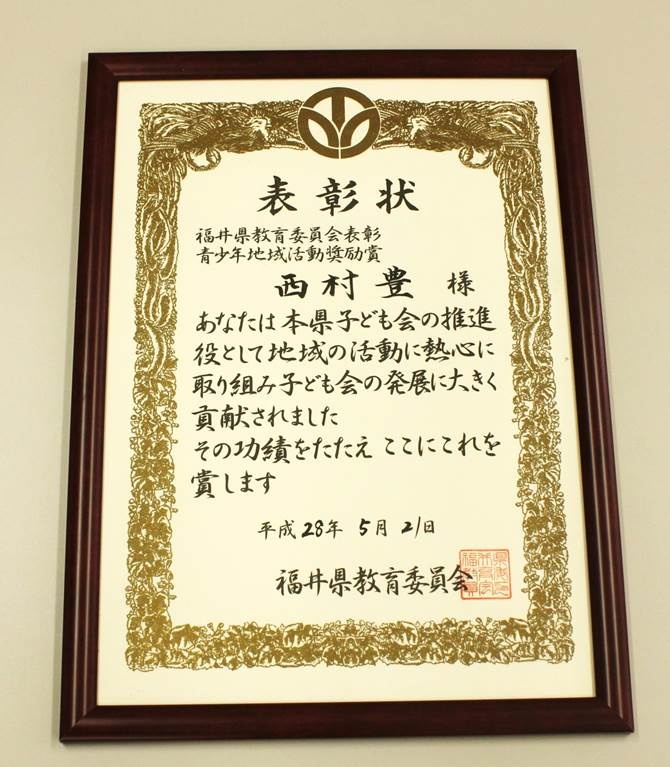 表彰状
福井県教育委員会表彰
青少年地域活動奨励賞
西村豊 様
あなたは本県子ども会の推進
役として地域の活動に熱心に
取り組み子ども会の発展に大きく
貢献されました
その功績をたたえ ここにこれを
賞します
平成28年 5月 21日
福井県教育委員会